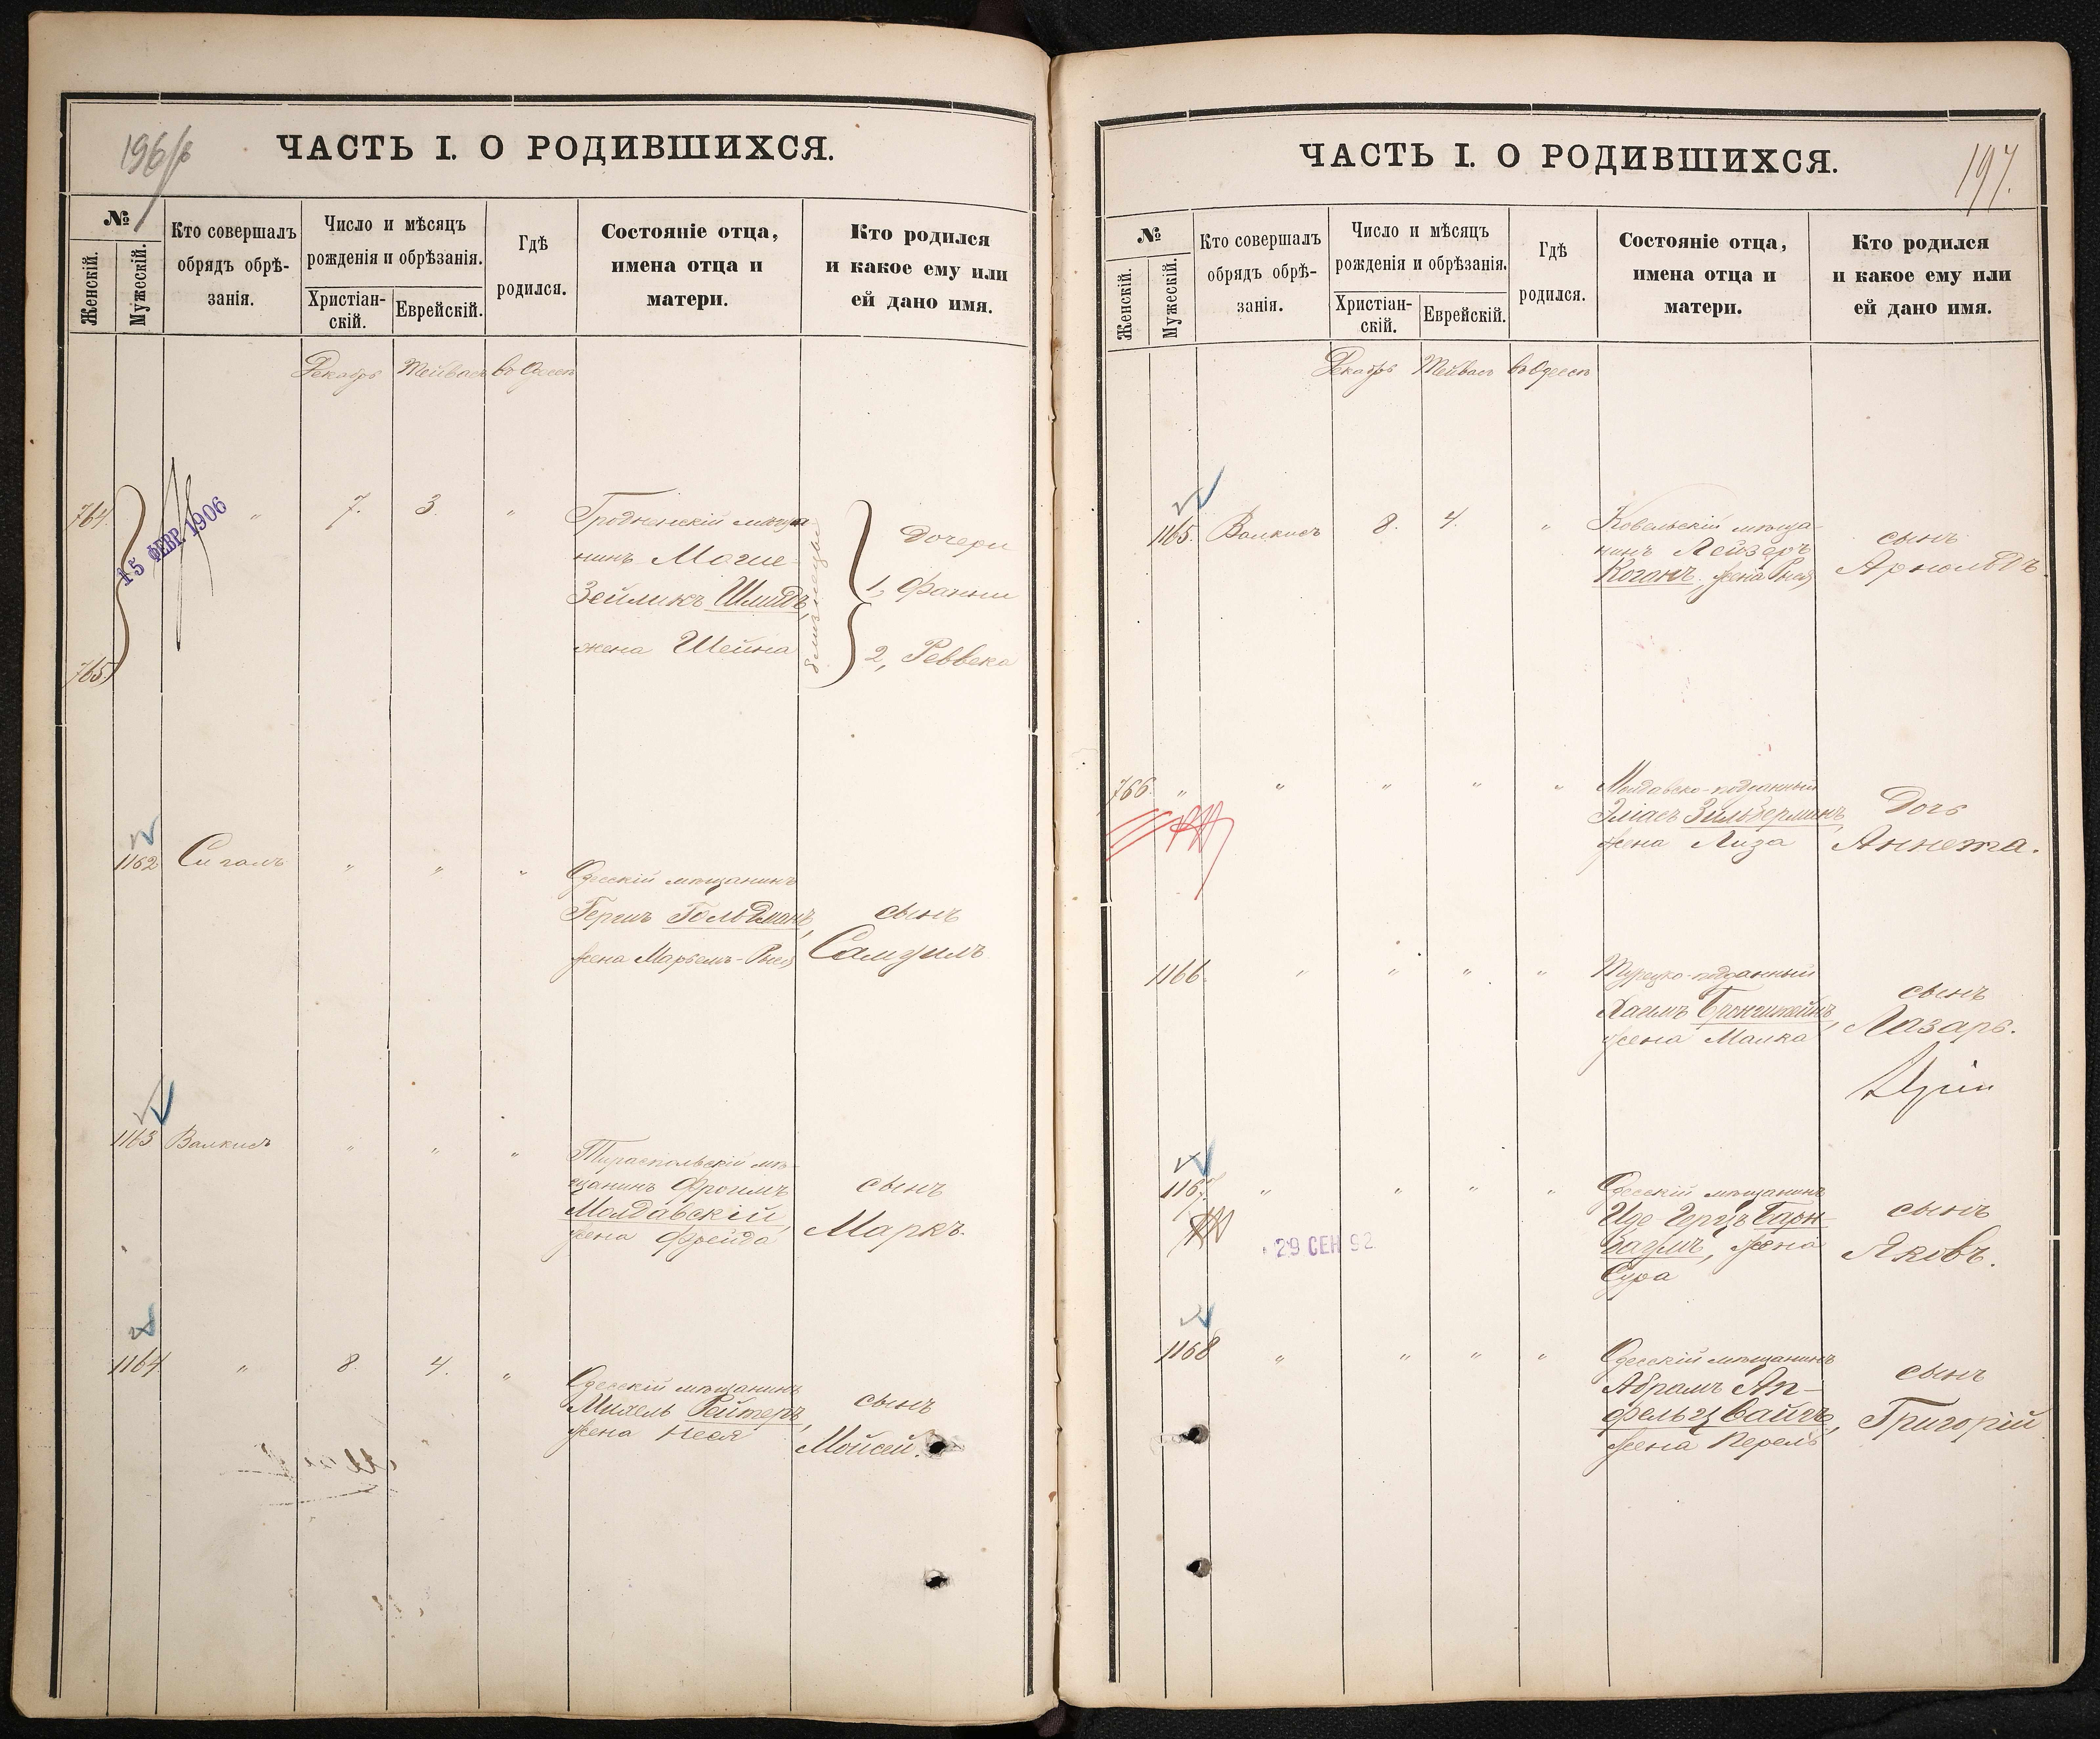 196/б
ЧАСТЬ I. О РОДИВШИХСЯ.
№
Женскій.
Мужескій.
Кто совершалъ
обрядъ обрѣ-
занія.
Число и мѣсяцъ
рожденія и обрѣзанія.
Христіан-
скій.
Еврейскій.
Гдѣ
родился.
Состояніе отца,
имена отца и
матери.
Кто родился
и какое ему или
ей дано имя.
Декабрь Тейвасъ въ Одессѣ
764.
765.
15 ФЕВР. 1906
" 7. 3. "
Гродненскій мѣща-
нинъ Мотие
Зейликъ Шмидъ,
жена Шейна
близнецы
Дочери
1, Фанни
2, Реввека
1162 Сигалъ " " "
Одесскій мѣщанинъ
Гершъ Гольдманъ,
жена Марьемъ-Рися
сынъ
Самуилъ
1163 Валкисъ " " "
Тираспольскій мѣ-
щанинъ Фроимъ
Молдавскій,
жена Фрейда
сынъ
Маркъ.
1164 " 8. 4. "
Одесскій мѣщанинъ
Михель Рейтеръ,
жена Неся
сынъ
Мойсей.
ЧАСТЬ I. О РОДИВШИХСЯ.
197.
№
Женскій.
Мужескій.
Кто совершалъ
обрядъ обрѣ-
занія.
Число и мѣсяцъ
рожденія и обрѣзанія.
Христіан-
скій.
Еврейскій.
Гдѣ
родился.
Состояніе отца,
имена отца и
матери.
Кто родился
и какое ему или
ей дано имя.
Декабрь Тейвасъ въ Одессѣ
1165. Валкисъ 8. 4. "
Ковельскій мѣща-
нинъ Лейзеръ
Коганъ, жена Рися
сынъ
Арнольдъ.
766. " " " " "
Молдавско-подданный
Эліасъ Зильберманъ,
жена Лиза
Дочь
Аннета.
1166. " " " "
Турецко-подданный
Хаимъ Бронштейнъ,
жена Малка
сынъ
Лазарь.
1167. " " " "
29 СЕН 92
Одесскій мѣщанинъ
Иде Герцъ Барн-
баумъ, жена
Сура
сынъ
Яковъ.
1168 " " " "
Одесскій мѣщанинъ
Абрамъ Ап-
фельцвайгъ,
жена Перель
сынъ
Григорій